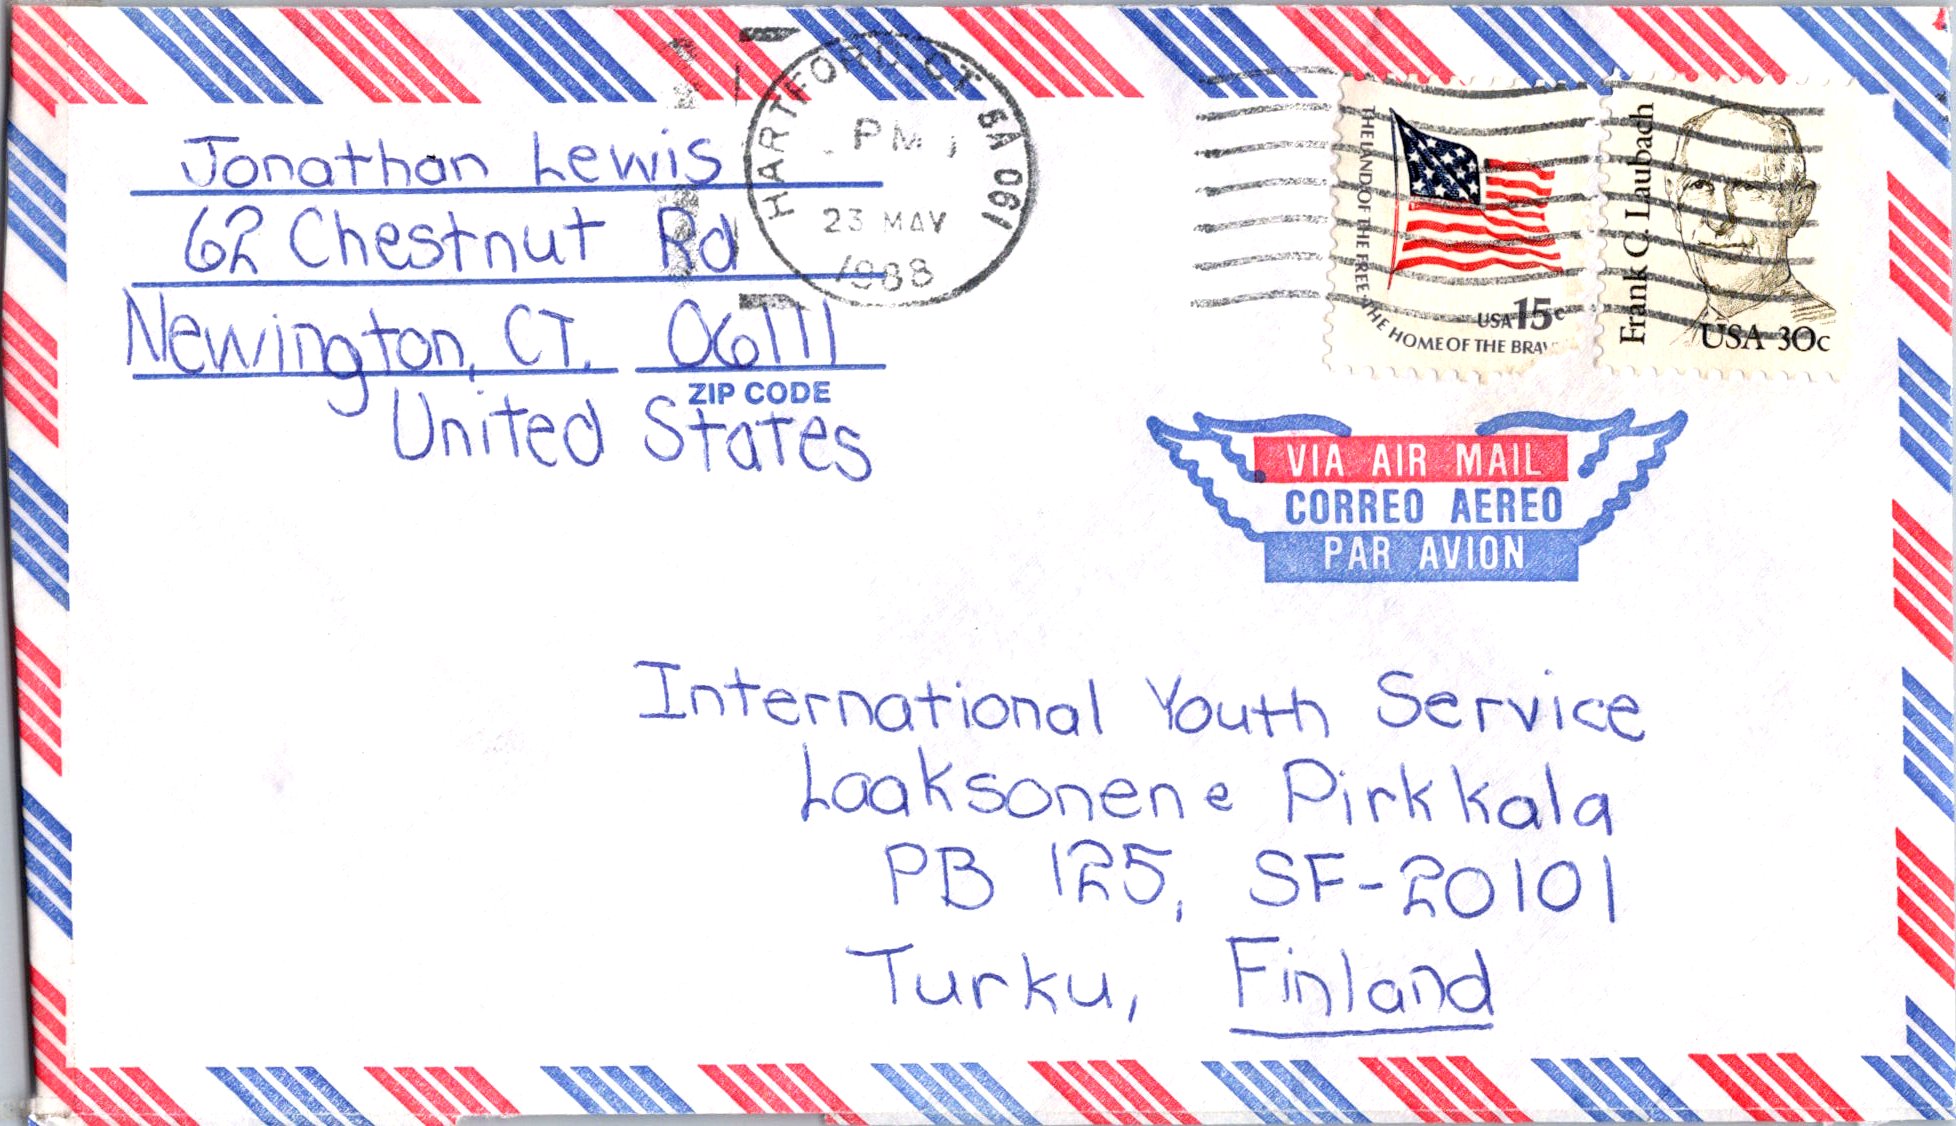 Jonathan Lewis
62 Chestnut Rd
Newington, CT. 06111
ZIP CODE
United States
HARTFORD CT BA 061
PM
23 MAY
1988
THE LAND OF THE FREE THE HOME OF THE BRAV
USA 15c
Frank C. Laubach
USA 30c
VIA AIR MAIL
CORREO AEREO
PAR AVION
International Youth Service
Laaksonen e Pirkkala
PB 125, SF-20101
Turku, Finland